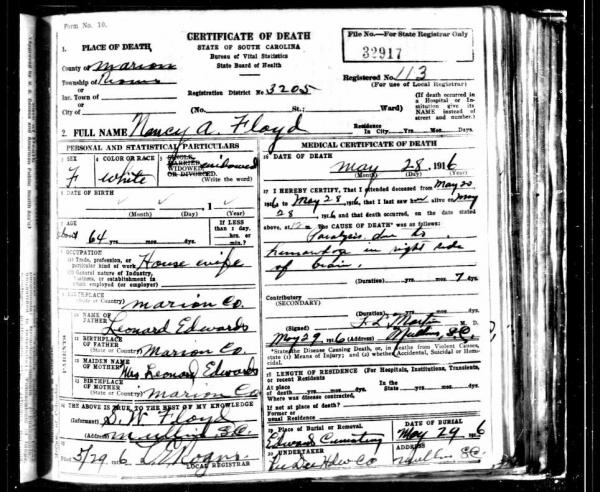 Form No. 10.
CERTIFICATE OF DEATH
STATE OF SOUTH CAROLINA
Bureau of Vital Statistics
State Board of Health
File No.—For State Registrar Only
32917
1. PLACE OF DEATH
County of Marion
Township of
or
Inc. Town of
or
City of
Registration District No 3205
Registered No. 113
(For use of Local Registrar)
(No. St.; Ward)
(If death occurred in a Hospital or Institution give its NAME instead of street and number.)
2. FULL NAME Nancy A. Floyd
Residence In City Yrs. Mos. Days
PERSONAL AND STATISTICAL PARTICULARS
3 SEX
F
4 COLOR OR RACE
White
5 SINGLE, MARRIED, WIDOWED, OR DIVORCED. widowed
(Write the word)
6 DATE OF BIRTH
(Month) (Day) (Year)
7 AGE
about 64 yrs. mos. ds.
If LESS than 1 day, hrs. or min.?
8 OCCUPATION
(a) Trade, profession, or particular kind of work House wife
(b) General nature of Industry, business, or establishment in which employed (or employer)
9 BIRTHPLACE
(State or Country) Marion Co.
10 NAME OF FATHER Leonard Edwards
11 BIRTHPLACE OF FATHER
(State or Country) Marion Co.
12 MAIDEN NAME OF MOTHER Mrs Leonard Edwards
13 BIRTHPLACE OF MOTHER
(State or Country) Marion Co
14 THE ABOVE IS TRUE TO THE BEST OF MY KNOWLEDGE
(Informant) S. W. Floyd
(Address) S.C.
Filed 5/29 1916
LOCAL REGISTRAR
MEDICAL CERTIFICATE OF DEATH
16 DATE OF DEATH
May 28, 1916
(Month) (Day) (Year)
17 I HEREBY CERTIFY, That I attended deceased from May 20
1916 to May 28, 1916, that I last saw alive on May
28, 1916 and that death occurred, on the date
above, at m. The CAUSE OF DEATH* was as follows:
Paralysis due to
in right side
of brain.
(Duration) yrs. mos. 7 ds.
Contributory
(SECONDARY)
(Duration) yrs. mos. ds.
(Signed) Martin M. D.
May 29, 1916 (Address) Mullins S.C.
*State the Disease Causing Death, or, in deaths from Violent Causes, state (1) Means of Injury; and (2) whether Accidental, Suicidal or Homicidal.
18 LENGTH OF RESIDENCE (For Hospitals, Institutions, Transients, or recent Residents
At place of death yrs. mos. ds. In the State yrs. mos. ds.
Where was disease contracted,
If not at place of death?
Former or usual Residence
19 Place of Burial or Removal.
Edwards Cemetery
DATE OF BURIAL
May 29, 1916
20 UNDERTAKER
Pee Dee Hdw Co
Mullins S.C.